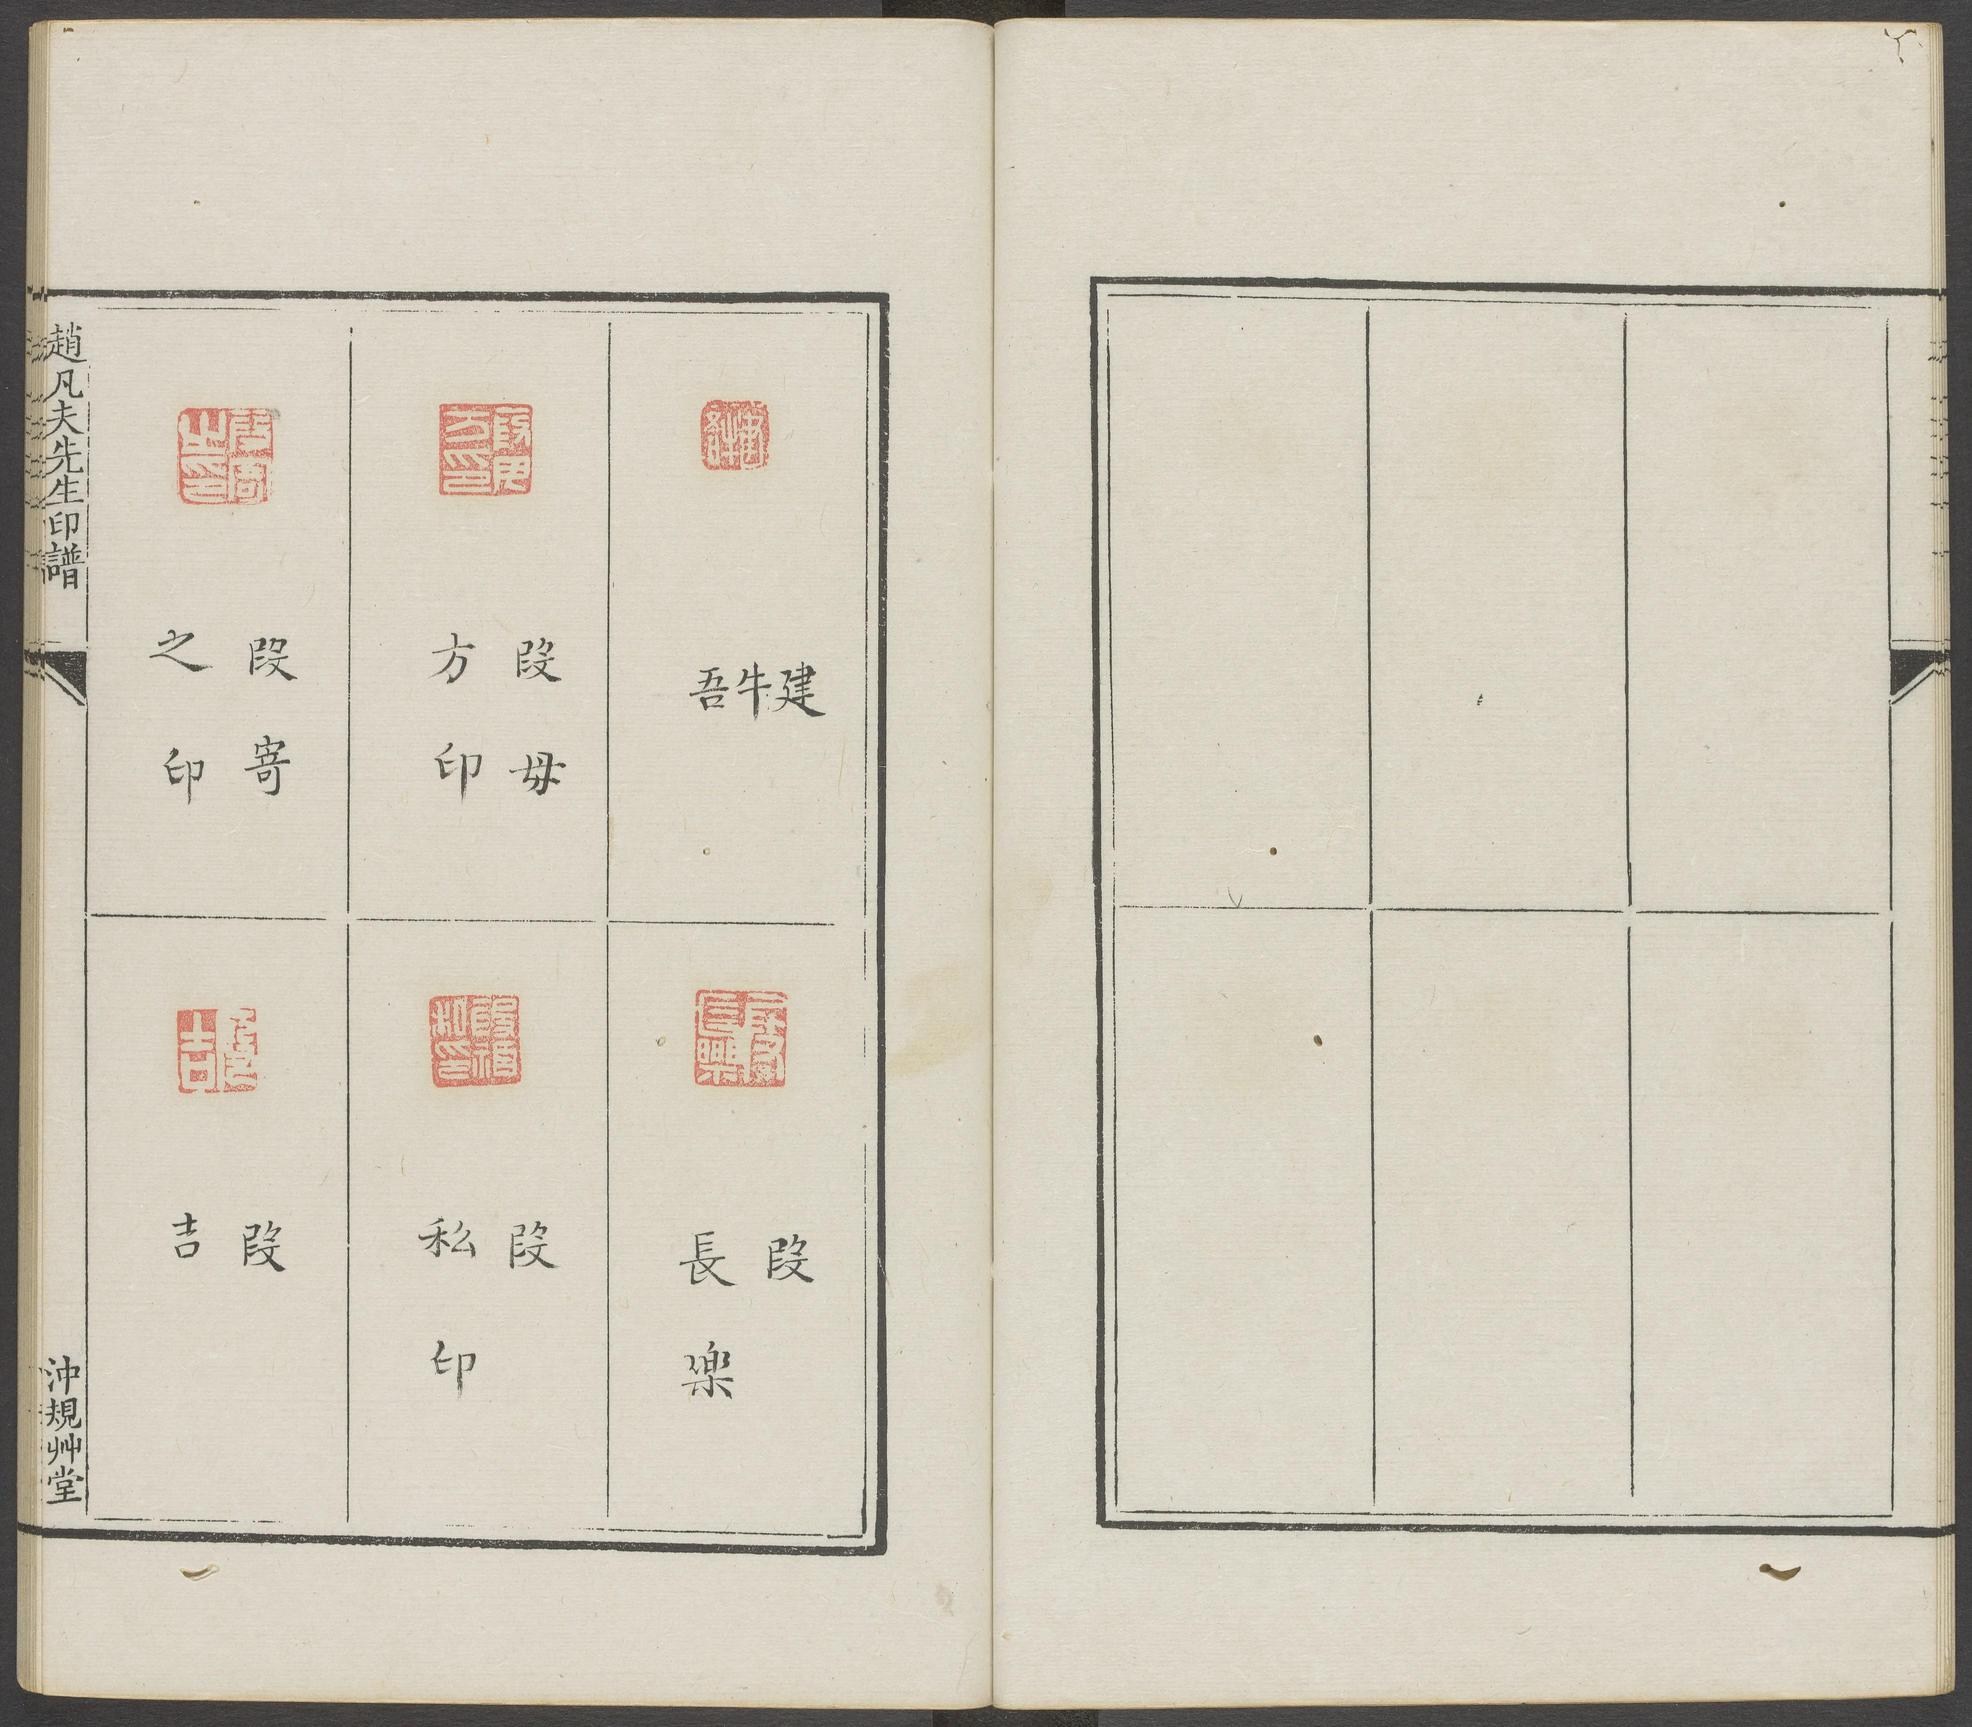 建
牛
吾
段毋
方印
段寄
之印
段
長樂
段
私印
段
吉
趙凡夫先生印譜
沖規艸堂